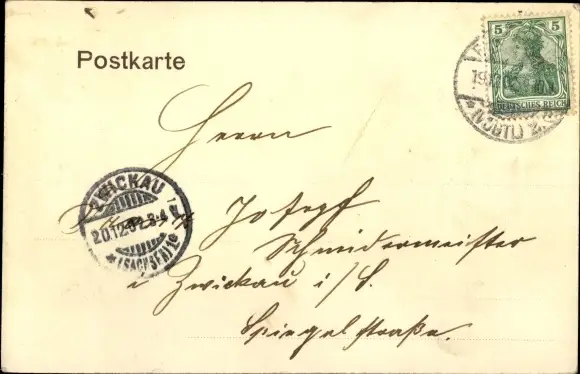 Postkarte
5
DEUTSCHES REICH
(VOGTL)
Herrn
ZWICKAU
20.12.
(SACHSEN)
Josef
Schneidermeister
i Zwickau i/S.
Spiegelstraße.